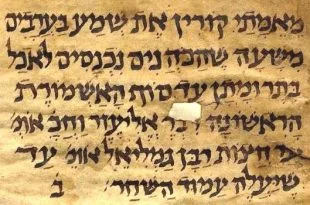 מאמתי קורין את שמע בערבים
משעה שהכהנים נכנסים לאכל
בתרומתן עד סוף האשמורת
הראשונה דבר אליעזר וחכ אומ׳
עד חצות רבן גמליאל אומ׳ עד
שיעלה עמוד השחר׃ ב